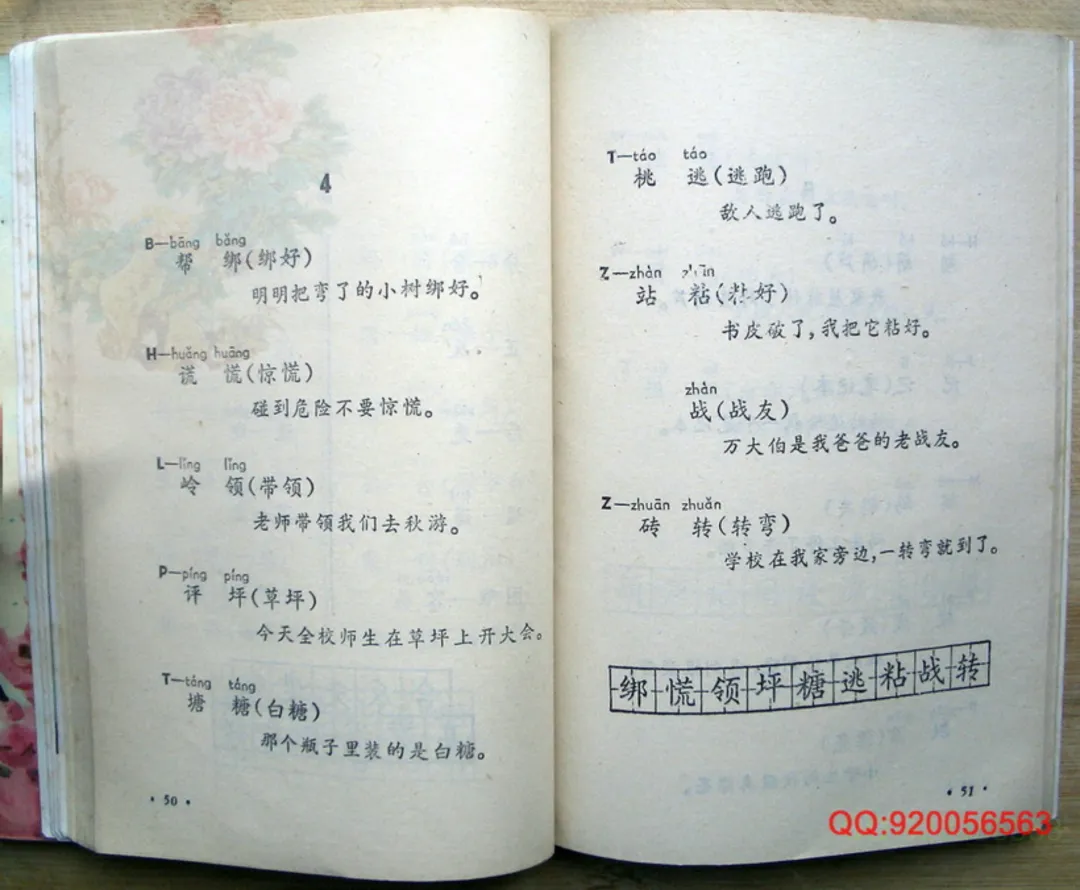 4
B—bāng bǎng
帮 绑(绑好)
明明把弯了的小树绑好。
H—huǎng huāng
谎 慌(惊慌)
碰到危险不要惊慌。
L—lǐng lǐng
岭 领(带领)
老师带领我们去秋游。
P—píng píng
评 坪(草坪)
今天全校师生在草坪上开大会。
T—táng táng
塘 糖(白糖)
那个瓶子里装的是白糖。
· 50 ·
T—táo táo
桃 逃(逃跑)
敌人逃跑了。
Z—zhàn
站 粘(粘好)
书皮破了,我把它粘好。
zhàn
战(战友)
万大伯是我爸爸的老战友。
Z—zhuān zhuǎn
砖 转(转弯)
学校在我家旁边,一转弯就到了。
绑慌领坪糖逃粘战转
· 51 ·
QQ:920056563